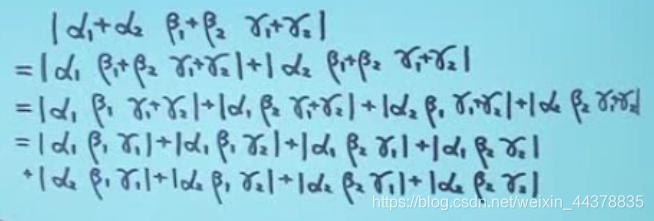 |α₁+α₂ β₁+β₂ γ₁+γ₂|
=|α₁ β₁+β₂ γ₁+γ₂|+|α₂ β₁+β₂ γ₁+γ₂|
=|α₁ β₁ γ₁+γ₂|+|α₁ β₂ γ₁+γ₂|+|α₂ β₁ γ₁+γ₂|+|α₂ β₂ γ₁+γ₂|
=|α₁ β₁ γ₁|+|α₁ β₁ γ₂|+|α₁ β₂ γ₁|+|α₁ β₂ γ₂|
+|α₂ β₁ γ₁|+|α₂ β₁ γ₂|+|α₂ β₂ γ₁|+|α₂ β₂ γ₂|
https://blog.csdn.net/weixin_44378835